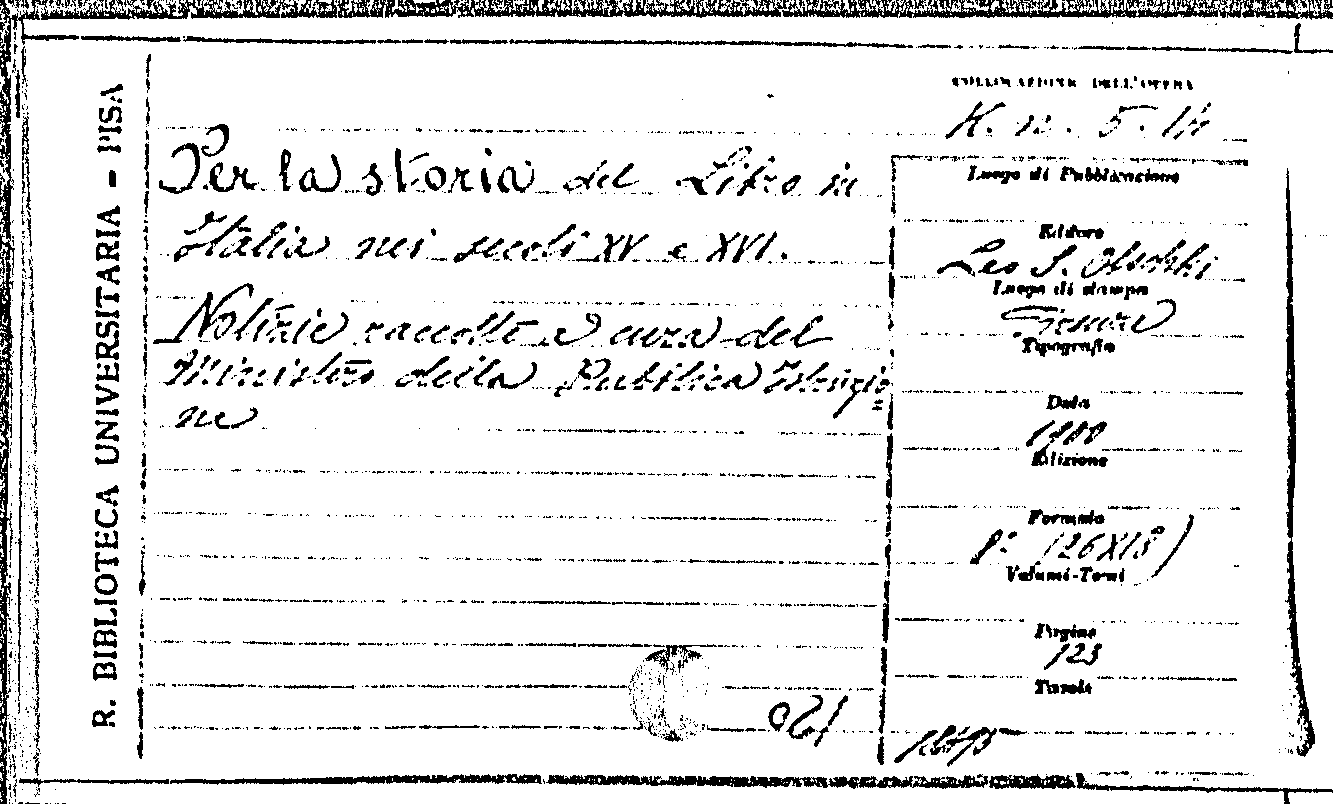 R. BIBLIOTECA UNIVERSITARIA - PISA
COLLOCAZIONE DELL'OPERA
K. n. 5. 14
Per la storia del Libro in
Italia nei secoli XV e XVI.
Notizie raccolte a cura del
Ministero della Pubblica Istruzio
ne
Luogo di Pubblicazione
Editore
Leo S. Olschki
Luogo di stampa
Firenze
Tipografia
Data
1900
Edizione
Formato
8º (26X18)
Volumi-Tomi
Pagine
123
Tavole